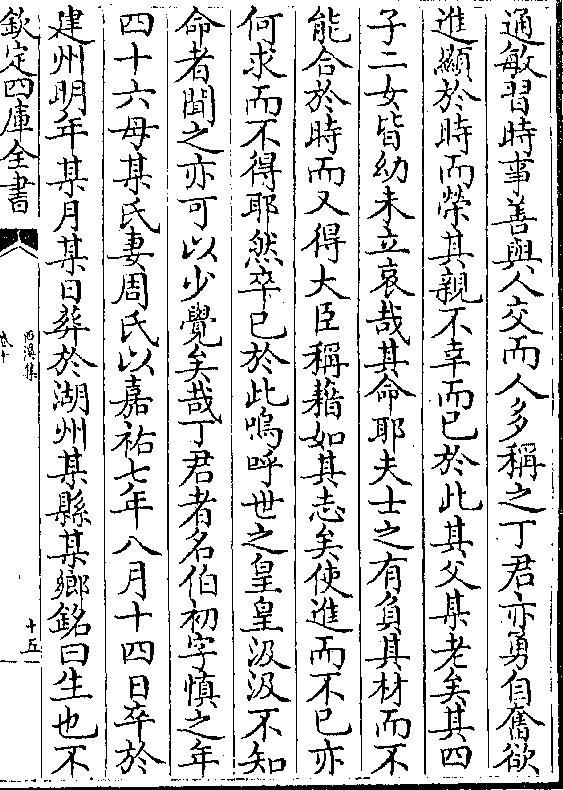 通敏習時事善與人交而人多稱之丁君亦勇自奮欲
進顯於時而榮其親不幸而已於此其父某老矣其四
子二女皆幼未立哀哉其命耶夫士之有負其材而不
能合於時而又得大臣稱藉如其志矣使進而不已亦
何求而不得耶然卒已於此嗚呼世之皇皇汲汲不知
命者聞之亦可以少覺矣哉丁君者名伯初字慎之年
四十六母某氏妻周氏以嘉祐七年八月十四日卒於
建州明年某月某日葬於湖州某縣某鄉銘曰生也不
欽定四庫全書
西溪集
卷十
十五